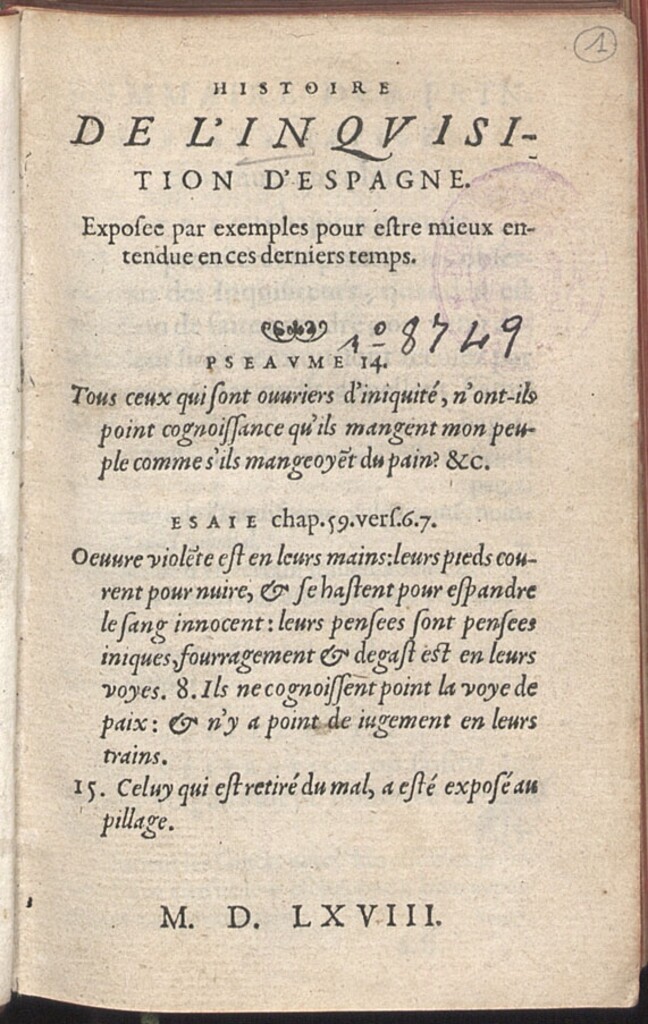 1
HISTOIRE
DE L'INQVISI-
TION D'ESPAGNE.
Exposee par exemples pour estre mieux en-
tendue en ces derniers temps.
no 8749
PSEAVME 14.
Tous ceux qui sont ouuriers d'iniquité, n'ont-ils
point cognoissance qu'ils mangent mon peu-
ple comme s'ils mangeoyẽt du pain? &c.
ESAIE chap.59.vers.6.7.
Oeuure violẽte est en leurs mains: leurs pieds cou-
rent pour nuire, & se hastent pour espandre
le sang innocent: leurs pensees sont pensees
iniques, fourragement & degast est en leurs
voyes. 8. Ils ne cognoissent point la voye de
paix: & n'y a point de iugement en leurs
trains.
15. Celuy qui est retiré du mal, a esté exposé au
pillage.
M. D. LXVIII.